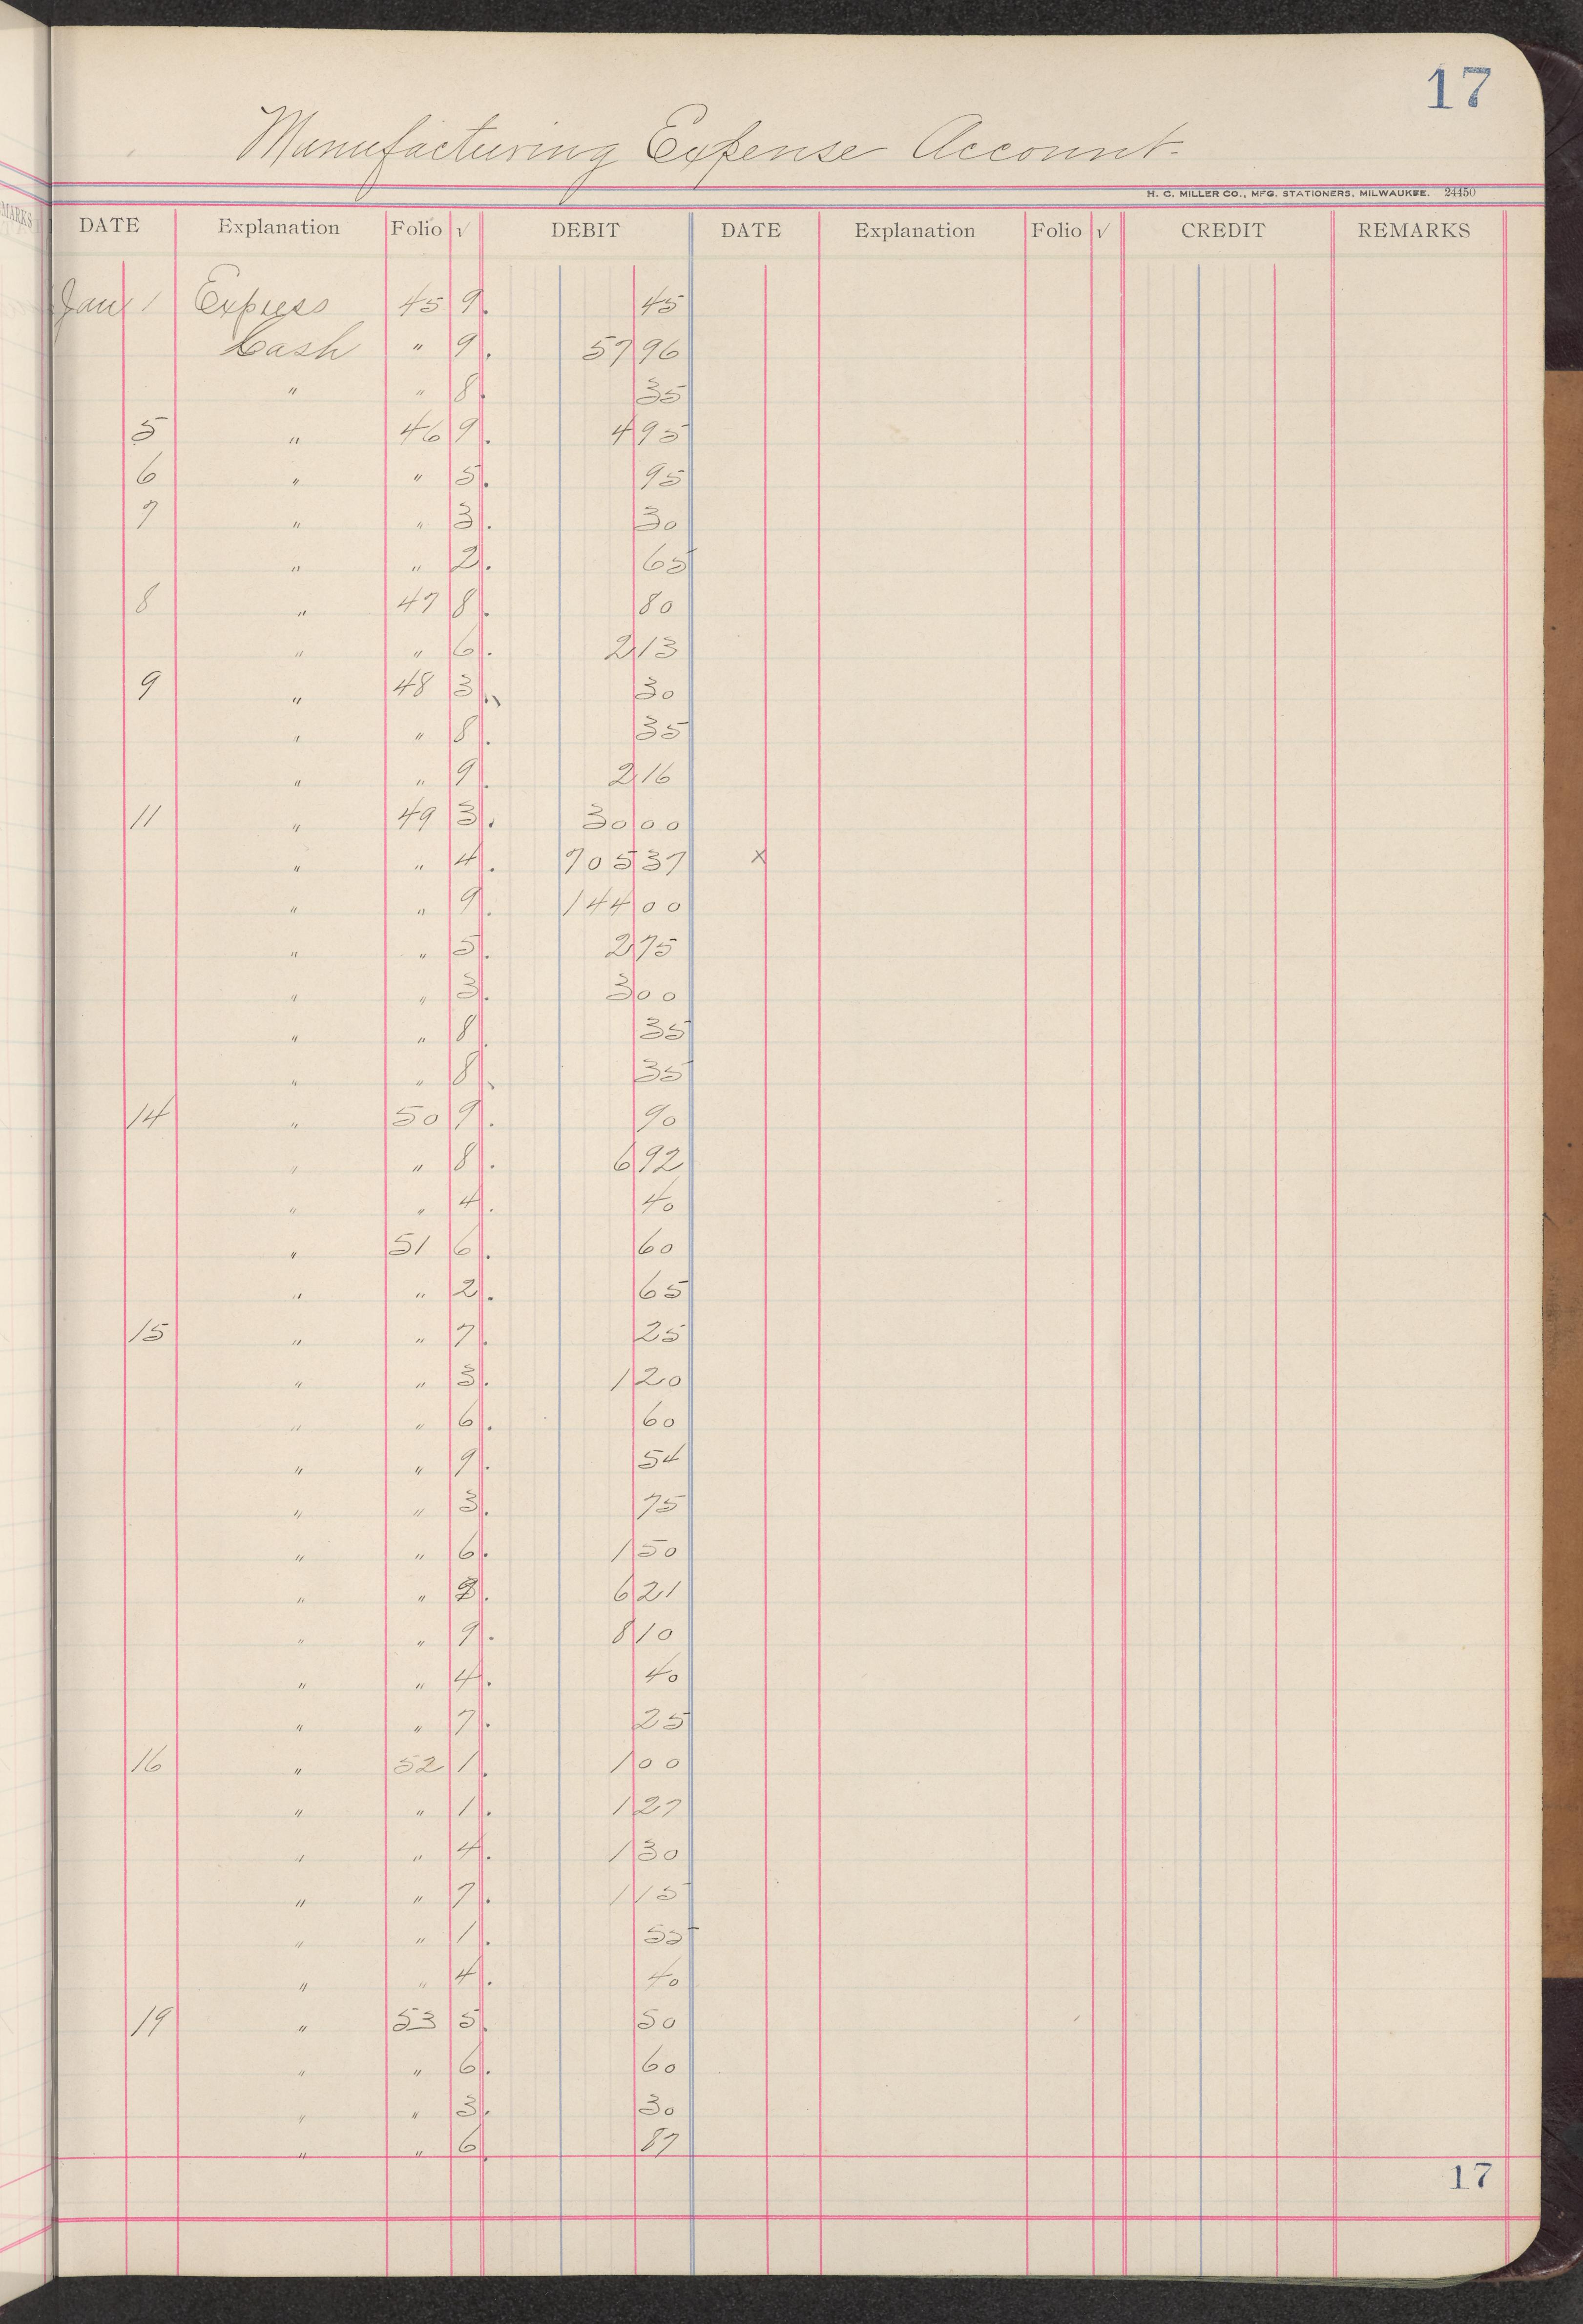 17
Manufacturing Expense Account
H. C. MILLER CO., MFG. STATIONERS, MILWAUKEE. 24450
DATE Explanation Folio √ DEBIT DATE Explanation Folio √ CREDIT REMARKS
Jan 1 Express 45 9. 45
Cash " 9. 57 96
" " 8. 35
5 " 46 9. 4 95
6 " " 5. 95
7 " " 3. 30
" " 2. 65
8 " 47 8. 80
" " 6. 2 13
9 " 48 3. 30
" " 8. 35
" " 9. 2 16
11 " 49 3. 30 00
" " 4. 705 37 x
" " 9. 144 00
" " 5. 2 75
" " 3. 3 00
" " 8. 35
" " 8. 35
14 " 50 9. 90
" " 8. 6 92
" " 4. 40
" 51 6. 60
" " 2. 65
15 " " 7. 25
" " 3. 1 20
" " 6. 60
" " 9. 54
" " 3. 75
" " 6. 1 50
" " . 6 21
" " 9. 8 10
" " 4. 40
" " 7. 25
16 " 52 1. 1 00
" " 1. 1 27
" " 4. 1 30
" " 7. 1 15
" " 1. 55
" " 4. 40
19 " 53 5. 50
" " 6. 60
" " 3. 30
" " 6. 87
17